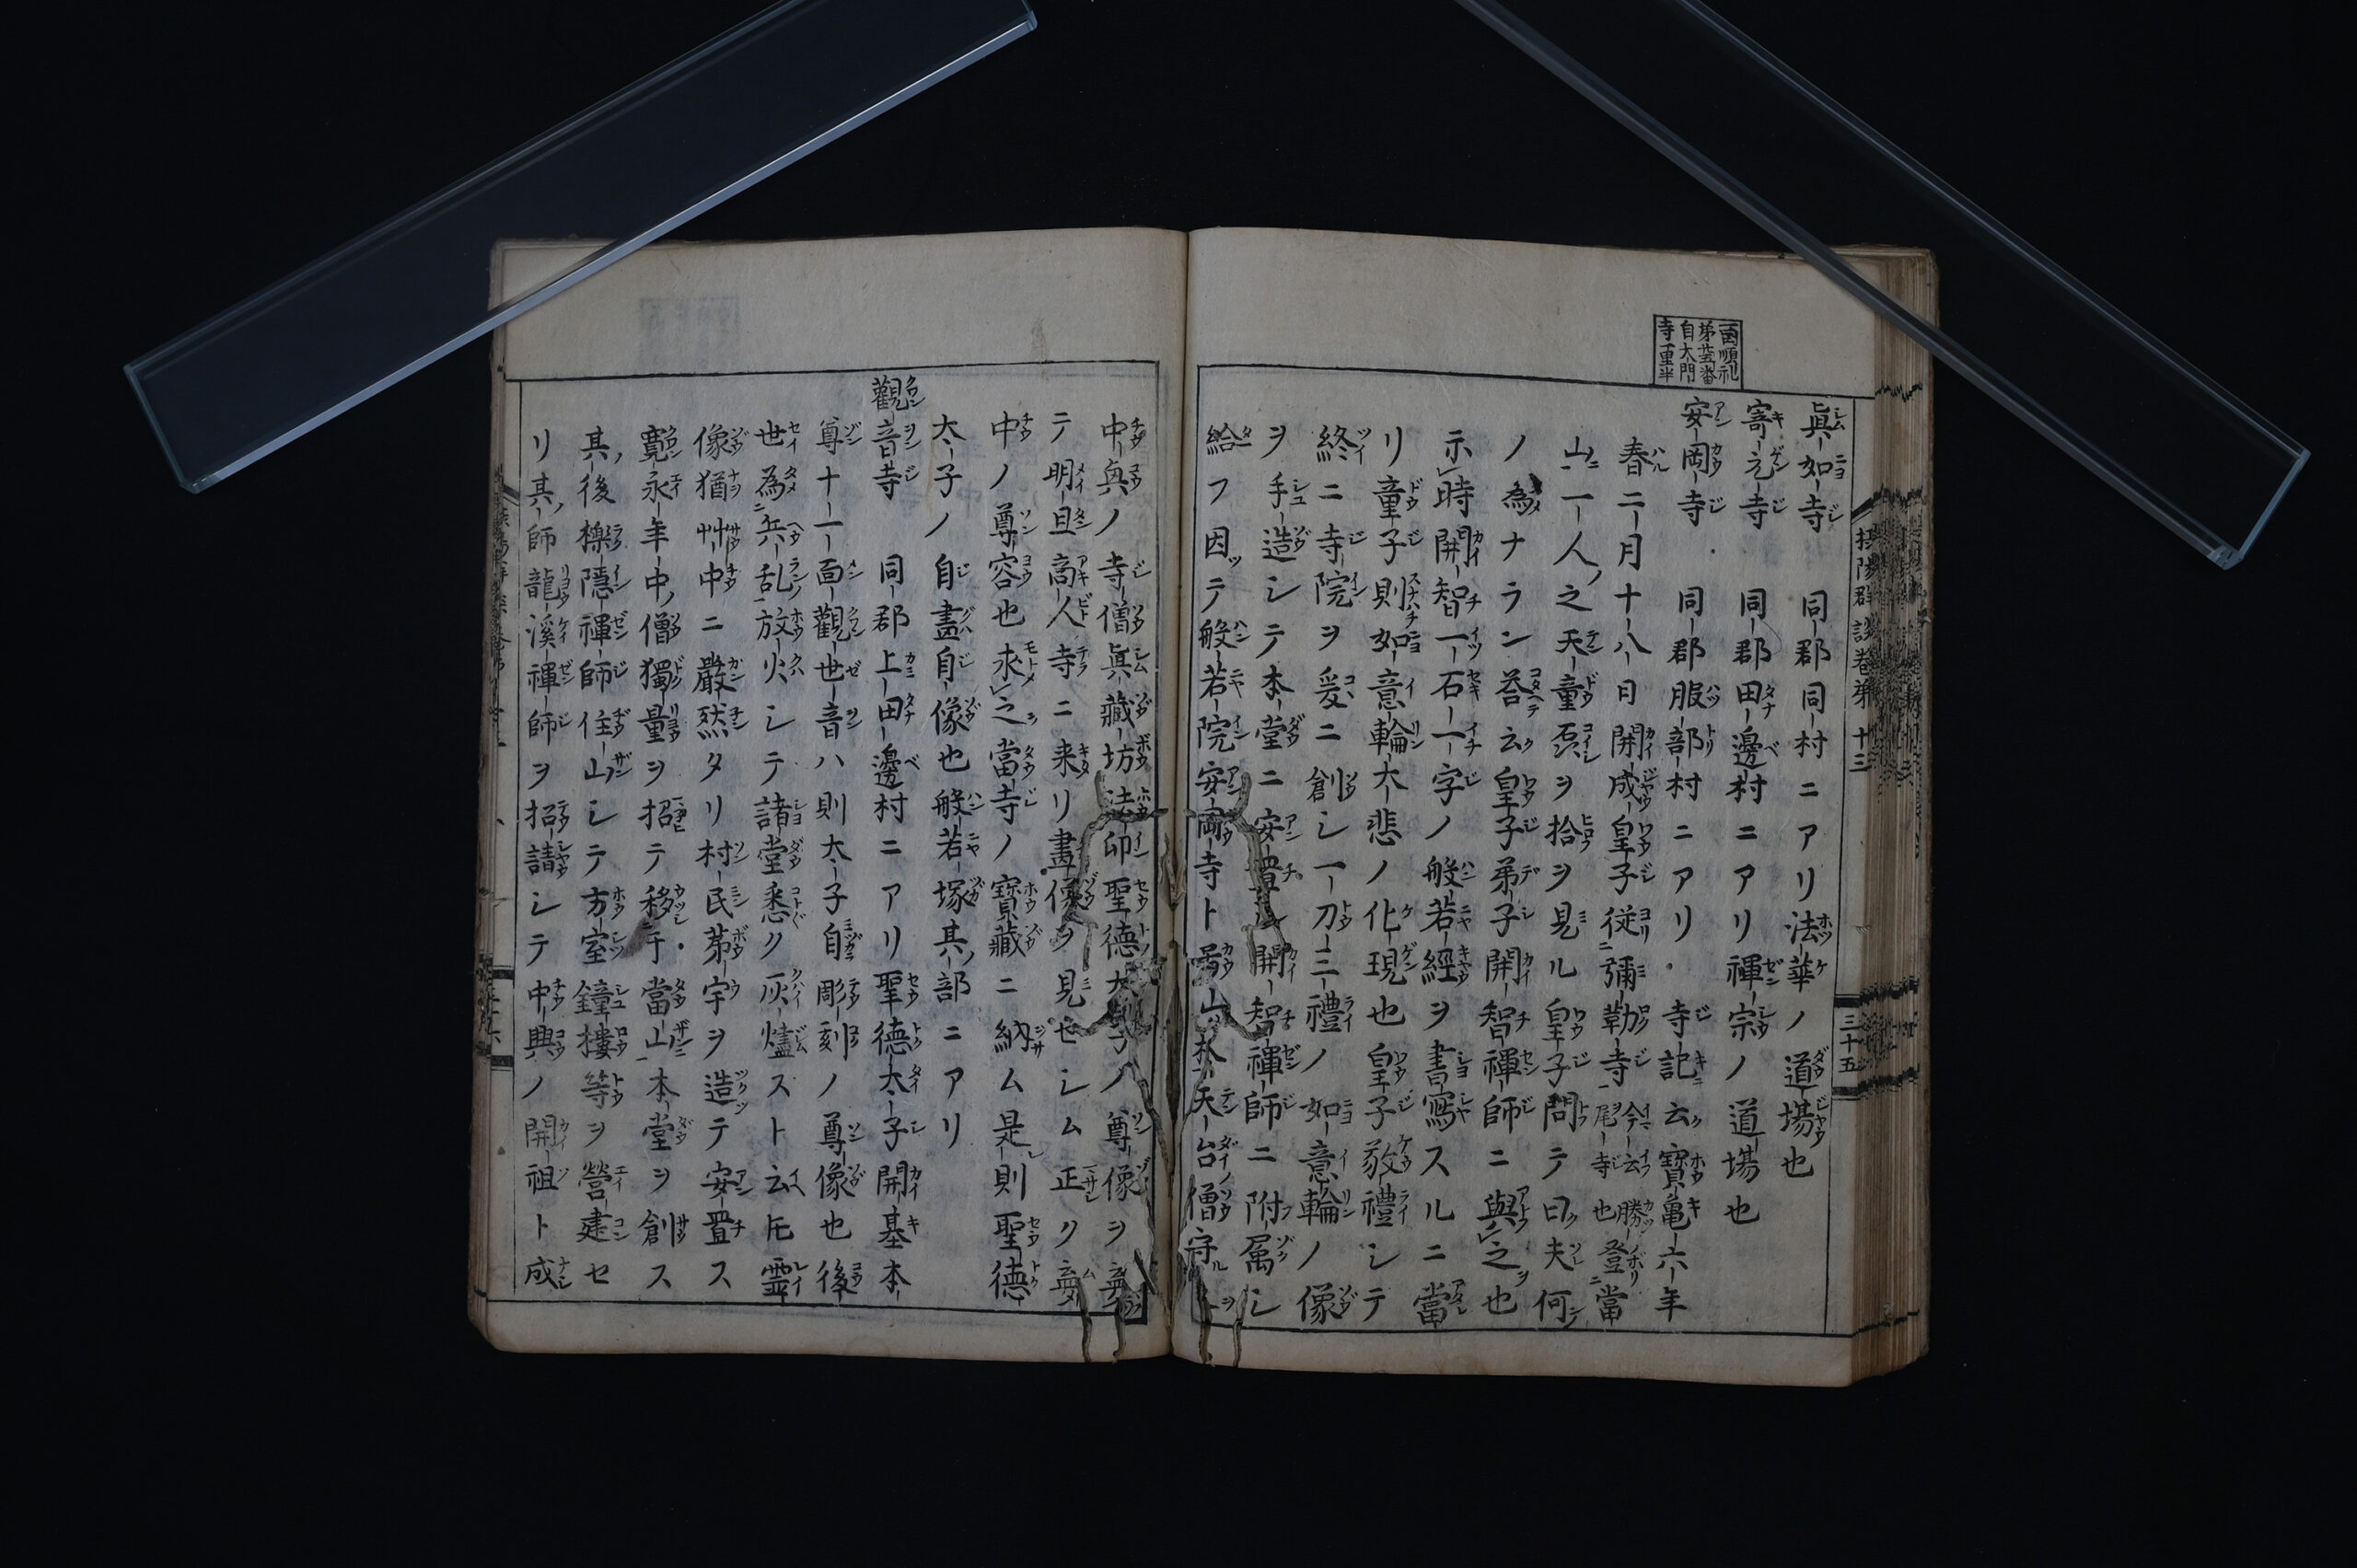 眞如寺 同郡同村ニアリ法華ノ道場也
寄元寺 同郡田邊村ニアリ禅宗ノ道場也
国順礼
第廿番
自大門
寺一里半
安岡寺 同郡服部村ニアリ 寺記云寳亀六年
春二月十八日開成皇子従彌勒寺今云勝尾寺也登當
山一人之天童磊ヲ拾ヲ見ル皇子問テ曰夫何
ノ為ナラン答云皇子弟子開智禅師ニ與之也
示時開智一石一字ノ般若經ヲ書寫スルニ當
リ童子則如意輪大悲ノ化現也皇子敬禮シテ
終ニ寺院ヲ爰ニ創シ一刀三禮ノ如意輪ノ像
ヲ手造シテ本堂ニ安置シ開智禅師ニ附属シ
給フ因テ般若院安岡寺ト号山天台僧守
摂陽群談巻第十三
三十五
中興ノ寺僧眞藏坊法印聖德太子ノ尊像ヲ
テ明旦高人寺ニ来リ畫像ヲ見セシム正ク
中ノ尊容也求之當寺ノ寳藏ニ納ム是則聖德
太子ノ自畫自像也般若塚其部ニアリ
觀音寺 同郡上田邊村ニアリ聖德太子開基本
尊十一面觀世音ハ則太子自彫刻ノ尊像也後
世為兵乱放火シテ諸堂悉ク灰燼スト云𪜈霊
像猶艸中ニ嚴然タリ村民茅宇ヲ造テ安置ス
寛永年中僧獨量ヲ招テ移于當山本堂ヲ創ス
其後樂隠禅師住山シテ方室鐘樓等ヲ營建セ
リ其師龍溪禅師ヲ招請シテ中興ノ開祖ト成